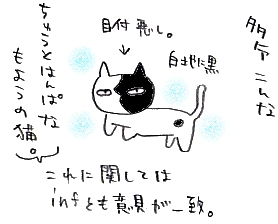 多分こんな
目付悪し。
白地に黒
ちゅうとはんぱな
もようの猫。
これに関しては
infとも意見が一致。